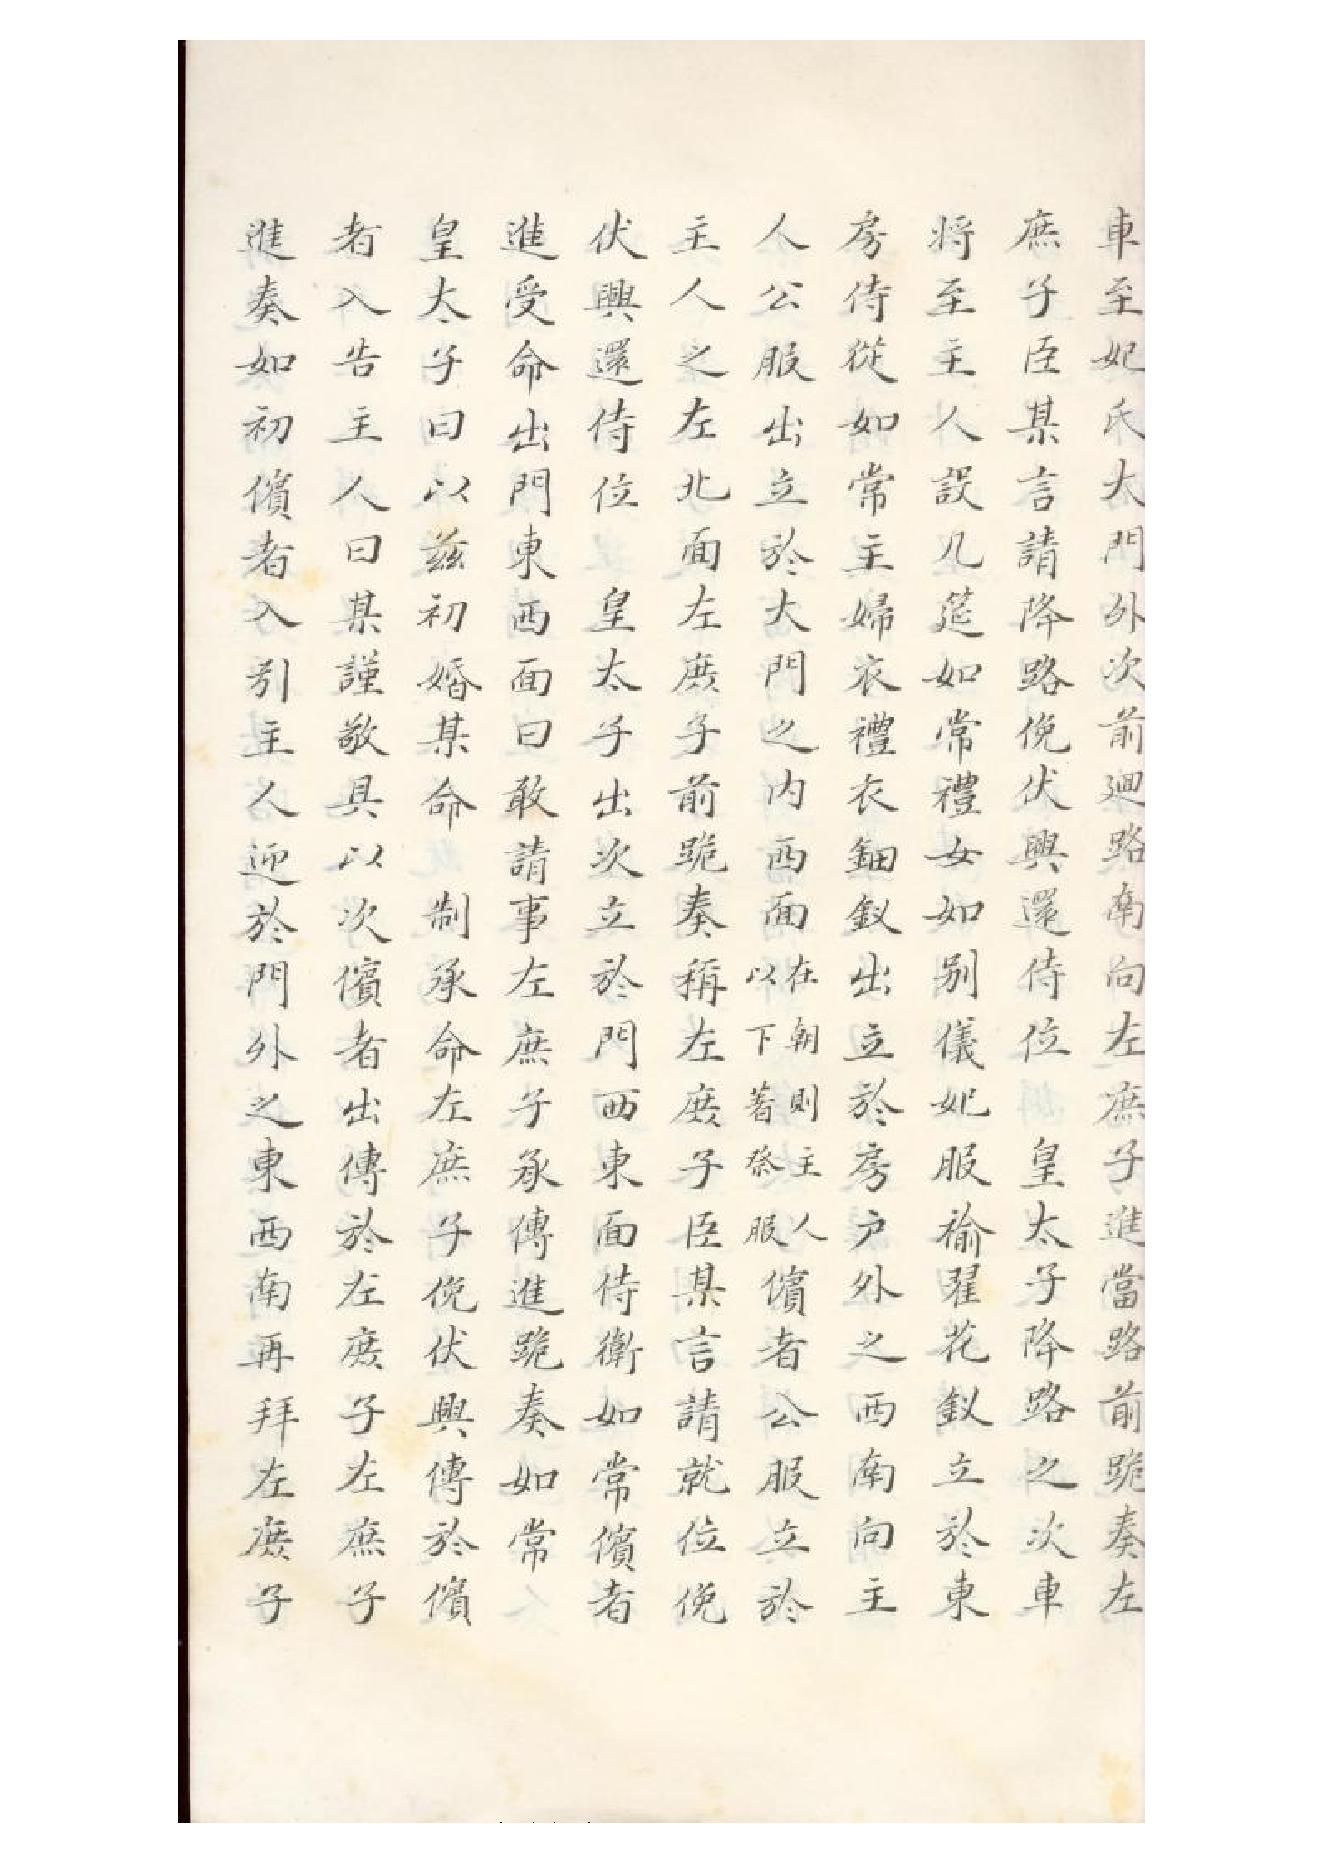 車至妃氏太門外次前廻路南向左庶子進當路前跪奏左
庶子臣某言請降路俛伏興還侍位　皇太子降路之次車
將至主人設几筵如常禮女如別儀妃服褕翟花釵立於東
房侍從如常主婦衣禮衣鈿釵出立於房户外之西南向主
人公服出立於大門之内西面在朝則主人以下著祭服儐者公服立於
主人之左北面左庶子前跪奏稱左庶子臣某言請就位俛
伏興還侍位　皇太子出次立於門西東面侍衛如常儐者
進受命出門東西面曰敢請事左庶子承傳進跪奏如常
皇太子曰以兹初婚某命　制承命左庶子俛伏興傳於儐
者入告主人曰某謹敬具以次儐者出傳於左庶子左庶子
進奏如初儐者入引主人迎於門外之東西南再拜左庶子